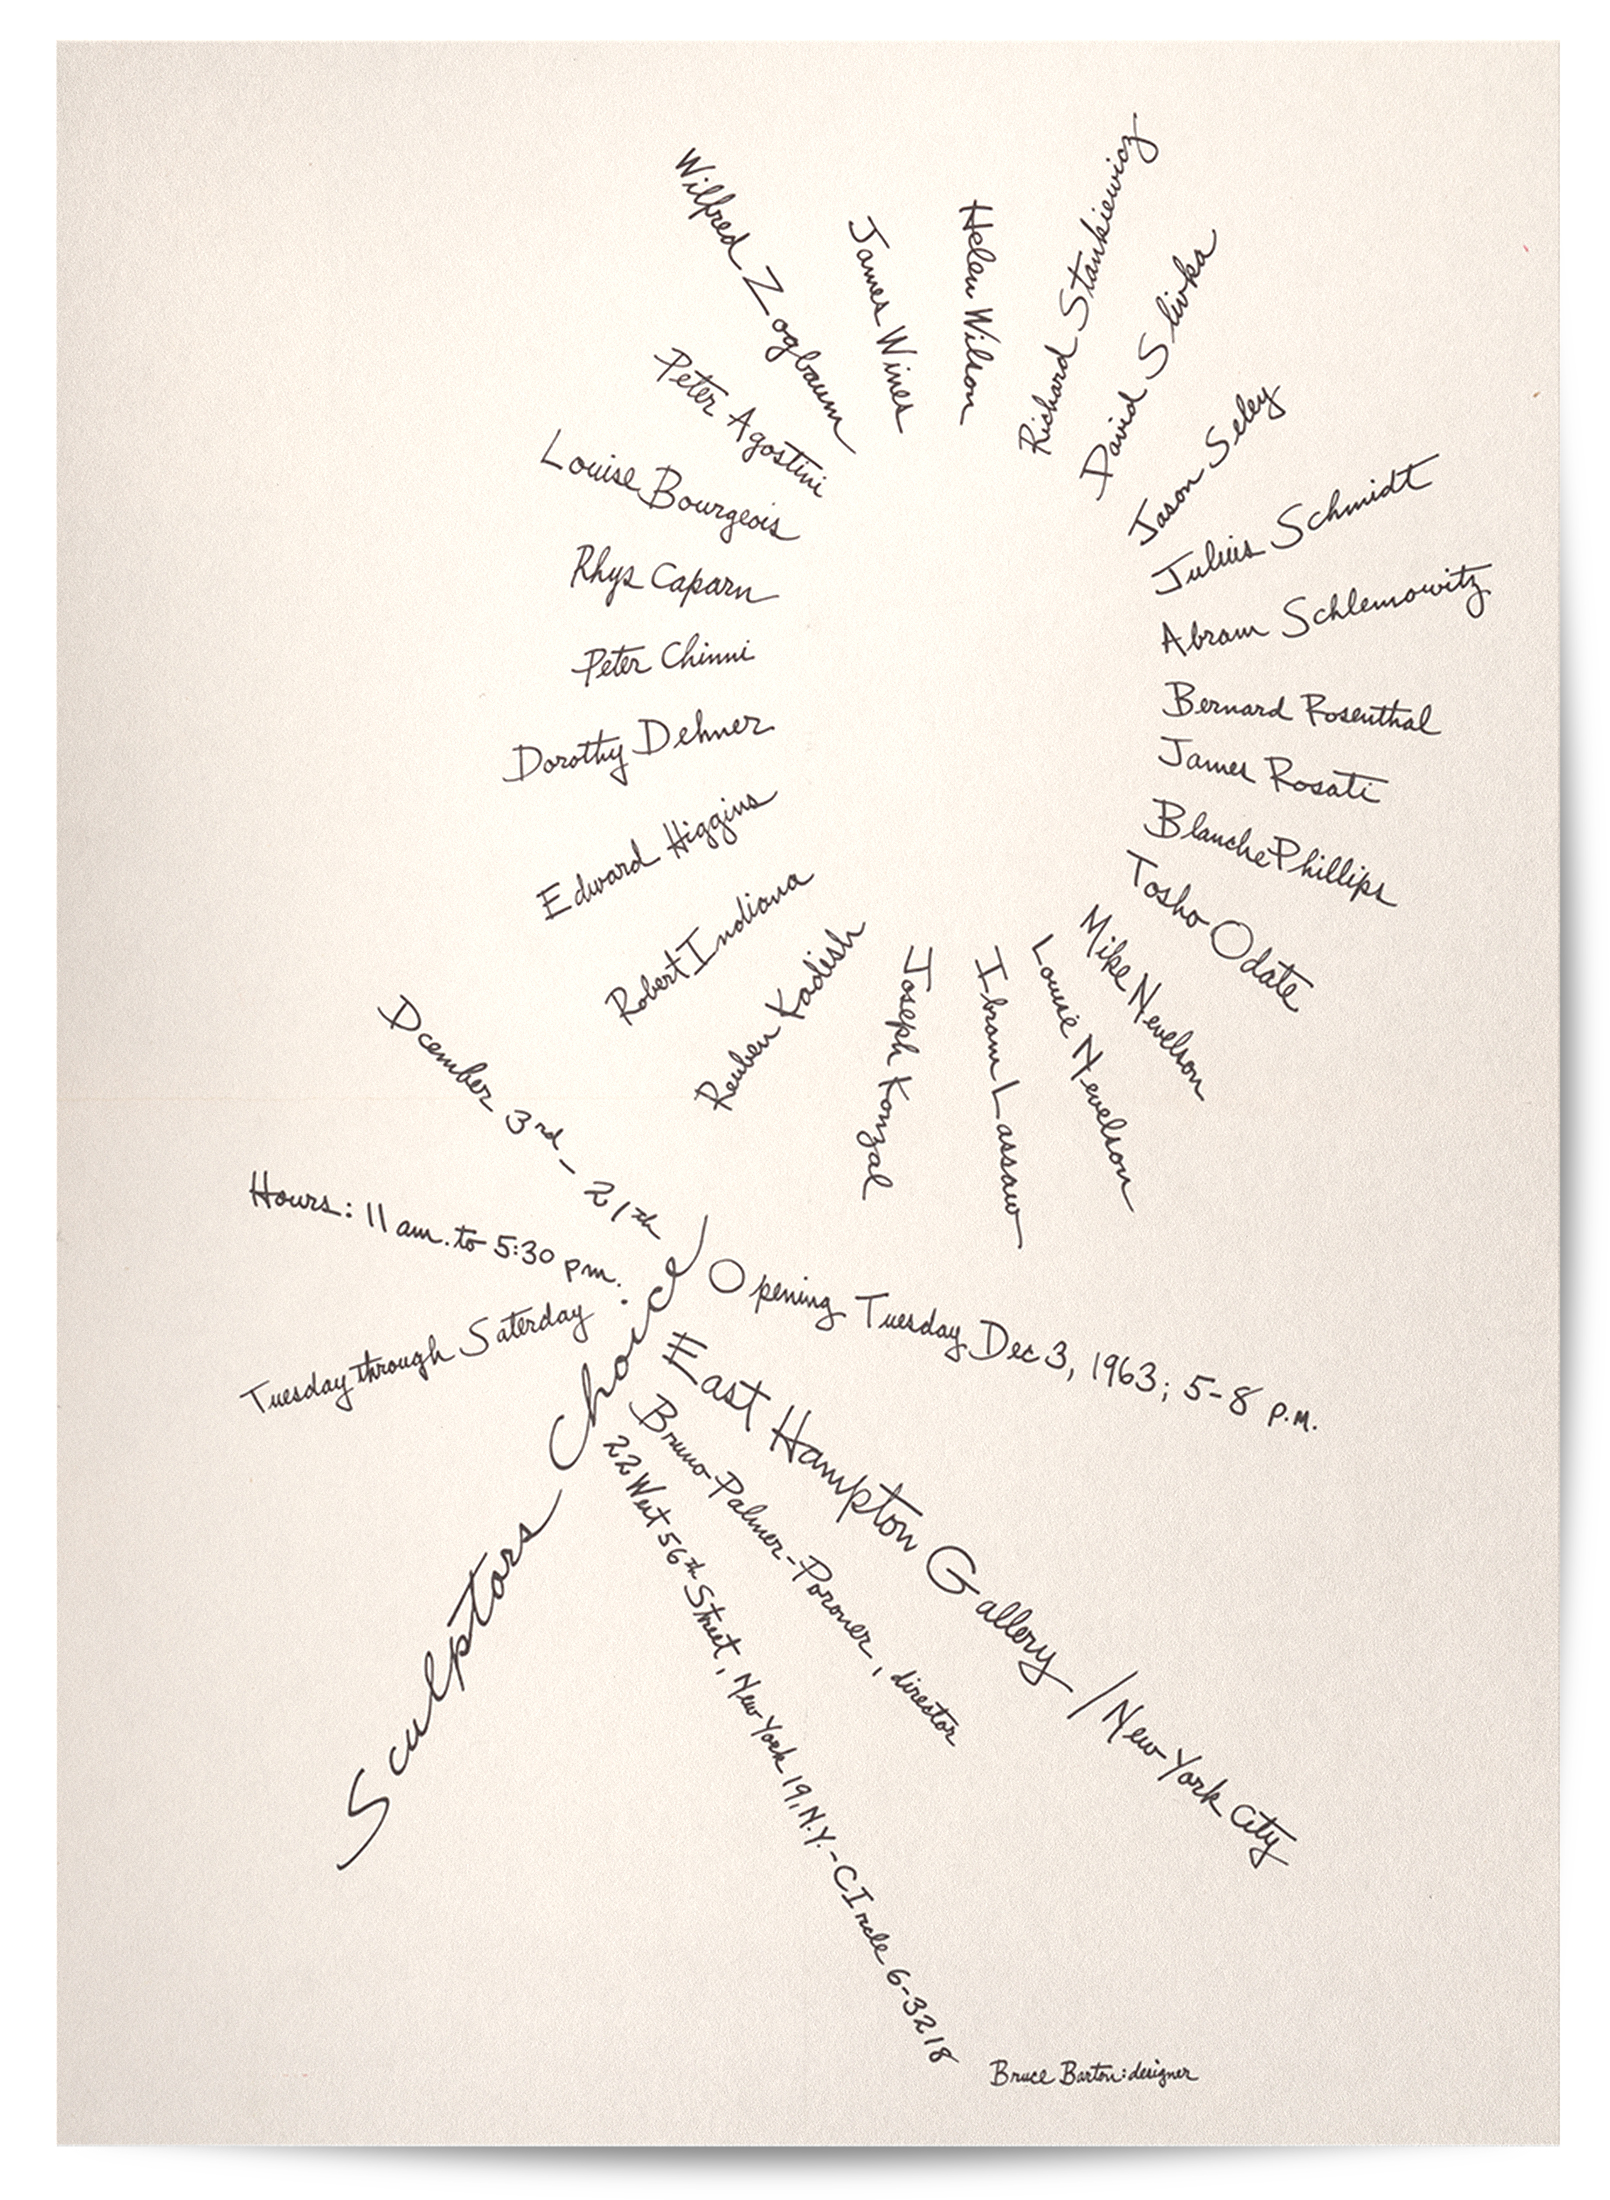 Peter Agostini
Louise Bourgeois
Rhys Caparn
Peter Chinni
Dorothy Dehner
Edward Higgins
Robert Indiana
Reuben Kadish
Joseph Konzal
Ibram Lassaw
Louise Nevelson
Mike Nevelson
Tosho Odate
Blanche Phillips
James Rosati
Bernard Rosenthal
Abram Schlemowitz
Julius Schmidt
Jason Seley
David Slivka
Richard Stankiewicz
Helen Wilson
James Wines
Wilfred Zogbaum
Dcember 3rd - 21th
Hours: 11 am. to 5:30 pm.
Tuesday through Saterday
Sculptors Choice
Opening Tuesday Dec 3, 1963; 5-8 P.M.
East Hampton Gallery / New York City
Bruno Palmer-Poroner, director
22 West 56th Street, New York 19, N.Y. - CIrcle 6-3218
Bruce Barton: designer